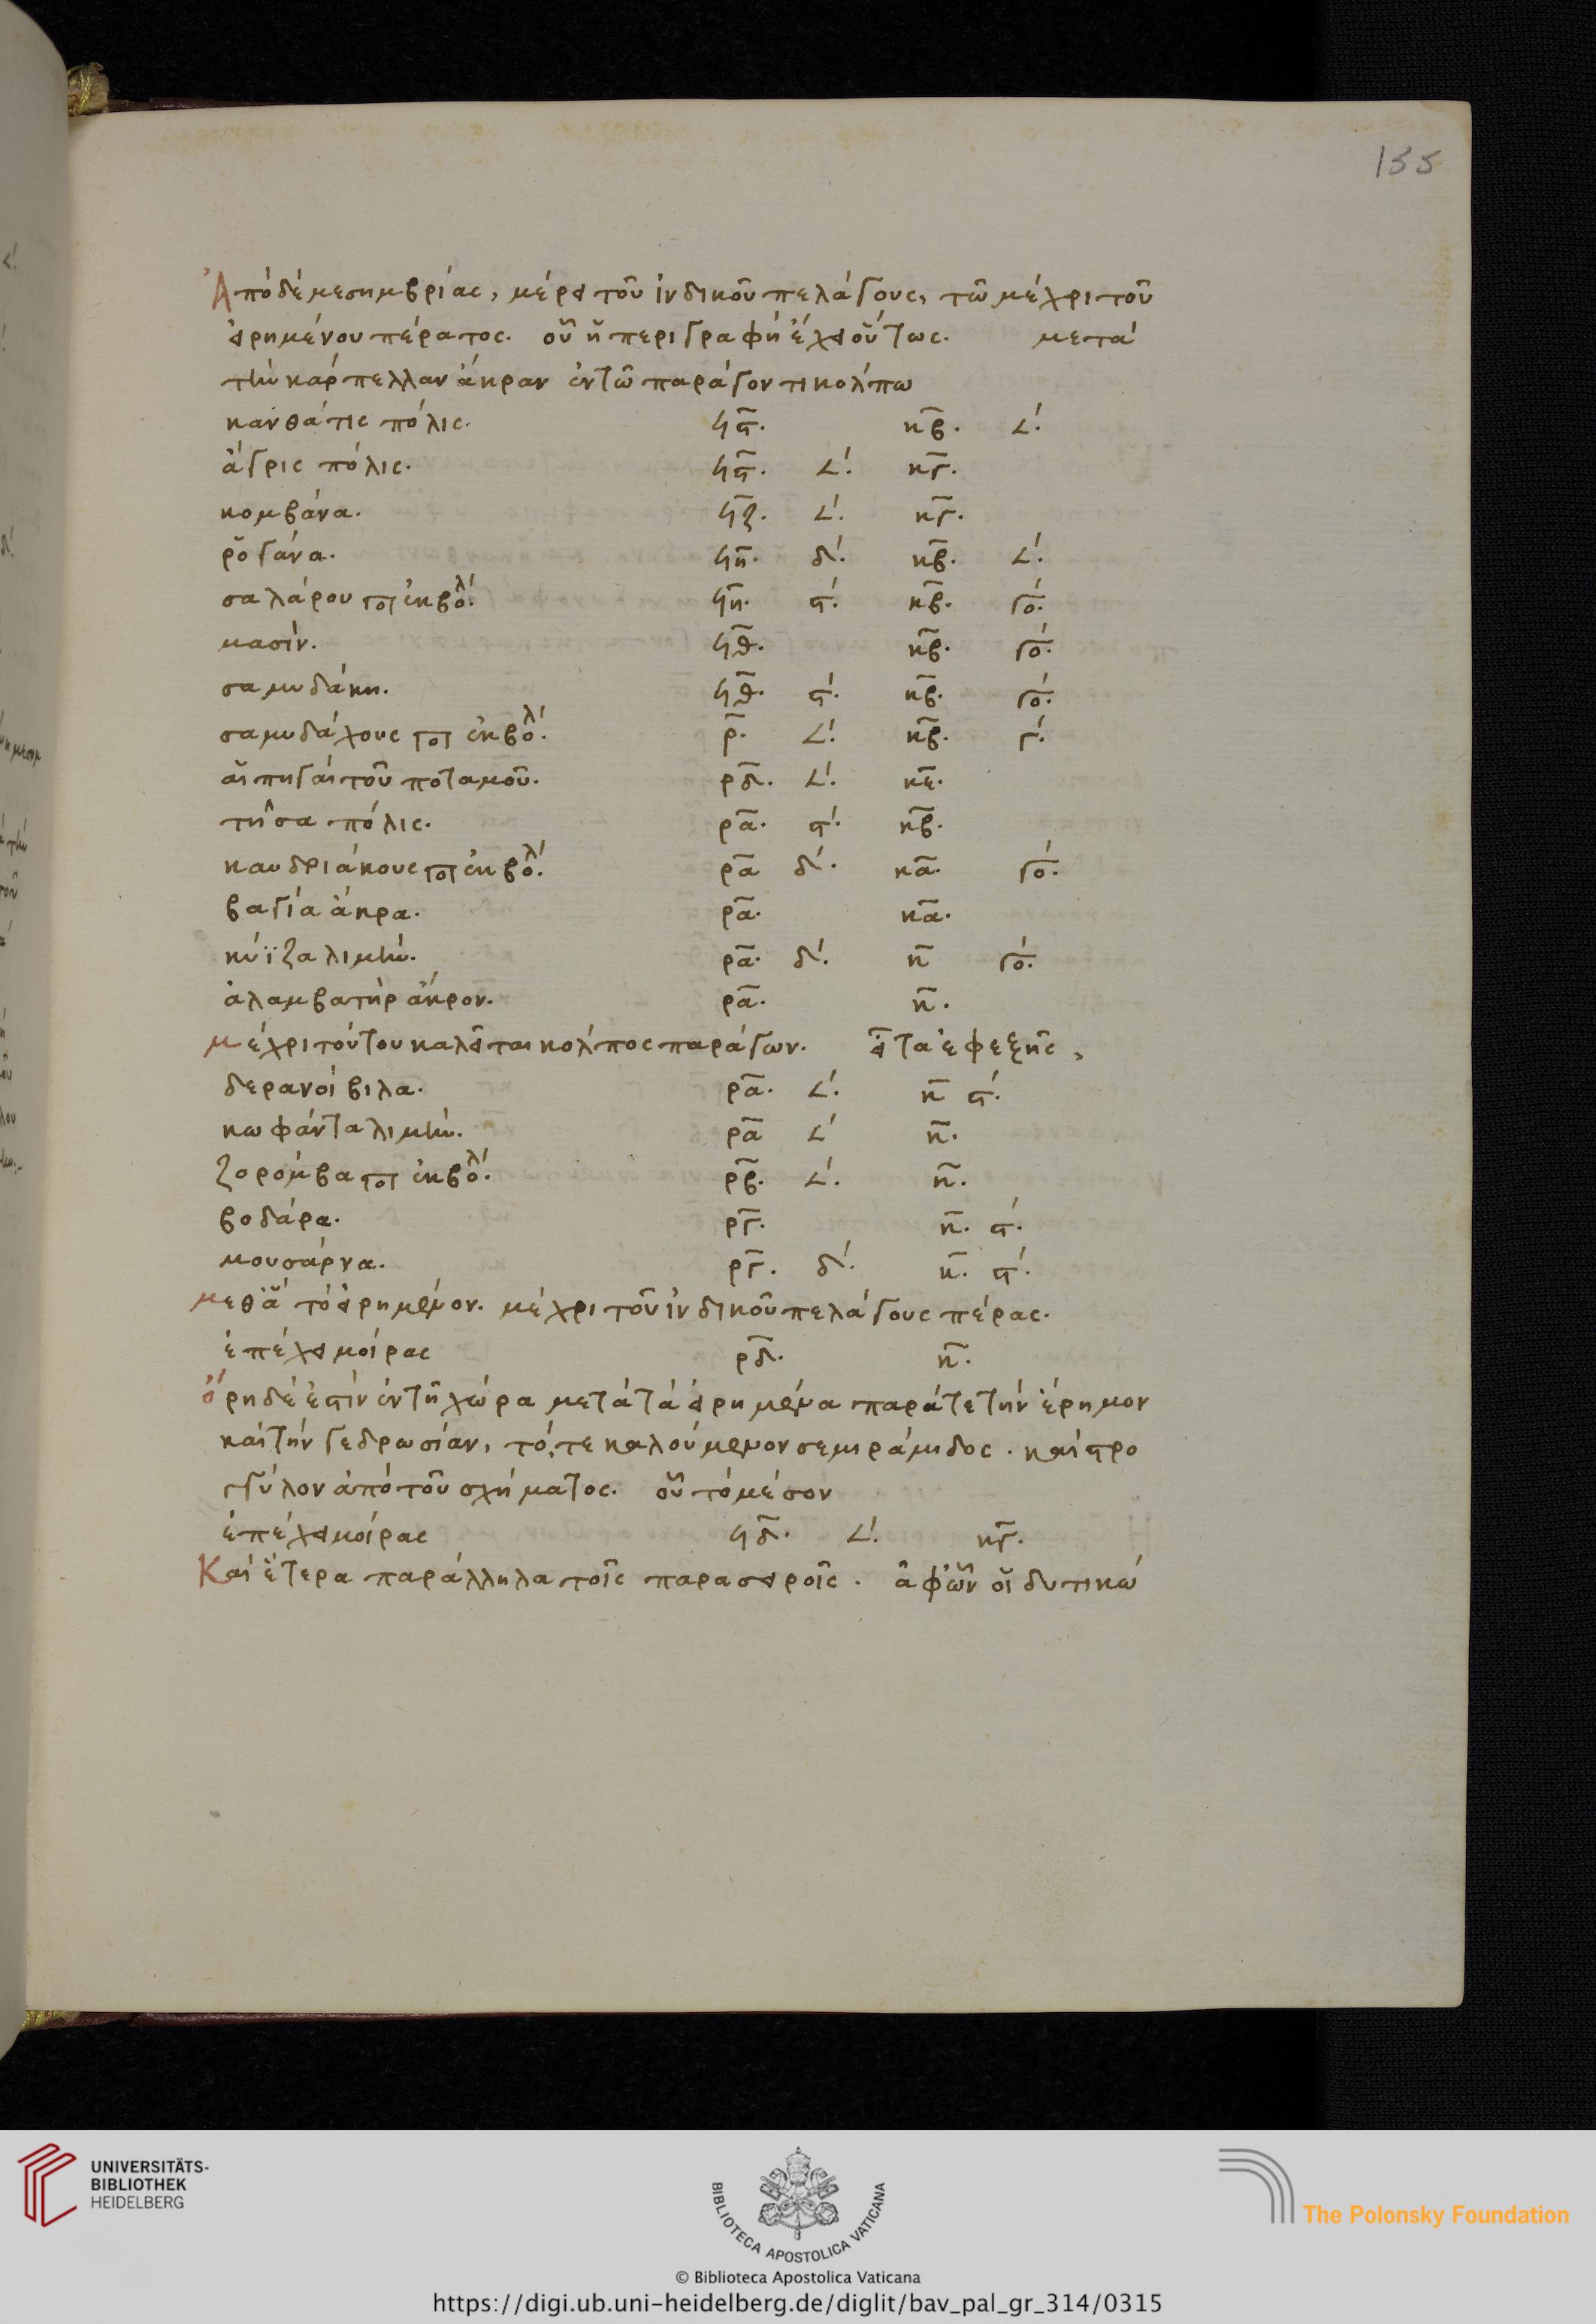 155
Ἀπὸ δὲ μεσημβρίας, μέρει τοῦ ἰνδικοῦ πελάγους, τῶ μέχρι τοῦ
εἰρημένου πέρατος. οὗ ἡ περιγραφὴ ἔχει οὕτως. μετὰ
τὴν κάρπελλαν ἄκραν ἐν τῶ παράγοντι κόλπω
κανθάτις πόλις. ϟϛ̅. κβ̅. 𐅵´.
ἄγρις πόλις. ϟϛ̅. 𐅵´. κγ̅.
κομβάνα. ϟζ̅. 𐅵´. κγ̅.
ῥόγανα. ϟη̅. δ´. κβ̅. 𐅵´.
σαλάρου ποτ ἐκβολ´. ϟη̅. ϛ´. κβ̅. γο´.
μασίν. ϟθ̅. κβ̅. γο´.
σαμυδάκη. ϟθ̅. ϛ´. κβ̅. γο´.
σαμυδάχους ποτ ἐκβολ´. ρ̅. 𐅵´. κβ̅. γ´.
αἱ πηγαὶ τοῦ ποταμοῦ. ρδ̅. 𐅵´. κε̅.
τῆσα πόλις. ρα̅. ϛ´. κβ̅.
καυδριάκους ποτ ἐκβολ´. ρα̅ δ´. κα̅. γο´.
βαγία ἄκρα. ρα̅. κα̅.
κύϊζα λιμήν. ρα̅. δ´. κ̅ γο´.
ἀλαμβατὴρ ἄκρον. ρα̅. κ̅.
μέχρι τούτου καλεῖται κόλπος παράγων. εἶτα ἐφεξῆς,
δερανοίβιλα. ρα̅. 𐅵´. κ̅ ϛ´.
κωφάντα λιμήν. ρα̅ 𐅵´ κ̅.
ζορόμβα ποτ ἐκβολ´. ρβ̅. 𐅵´. κ̅.
βοδάρα. ργ̅. κ̅. ϛ´.
μουσάρνα. ργ̅. δ´. κ̅. ϛ´.
μεθ' ἃ τὸ εἰρημένον. μέχρι τοῦ ἰνδικοῦ πελάγους πέρας.
ἐπέχει μοίρας ρδ̅. κ̅.
ὄρη δέ ἐστιν ἐν τῇ χώρα μετὰ τὰ εἰρημένα παρά τε τὴν ἔρημον
καὶ τὴν γεδρωσίαν, τό, τε καλούμενον σεμιράμιδος. καὶ στρο
γγύλον ἀπὸ τοῦ σχήματος. οὗ τὸ μέσον
ἐπέχει μοίρας ϟδ̅. 𐅵´. κγ̅.
Καὶ ἕτερα παράλληλα τοῖς παρασειροῖς. ἀφ' ὧν οἱ δυτικώ
UNIVERSITÄTS-
BIBLIOTHEK
HEIDELBERG
BIBLIOTECA APOSTOLICA VATICANA
The Polonsky Foundation
© Biblioteca Apostolica Vaticana
https://digi.ub.uni-heidelberg.de/diglit/bav_pal_gr_314/0315